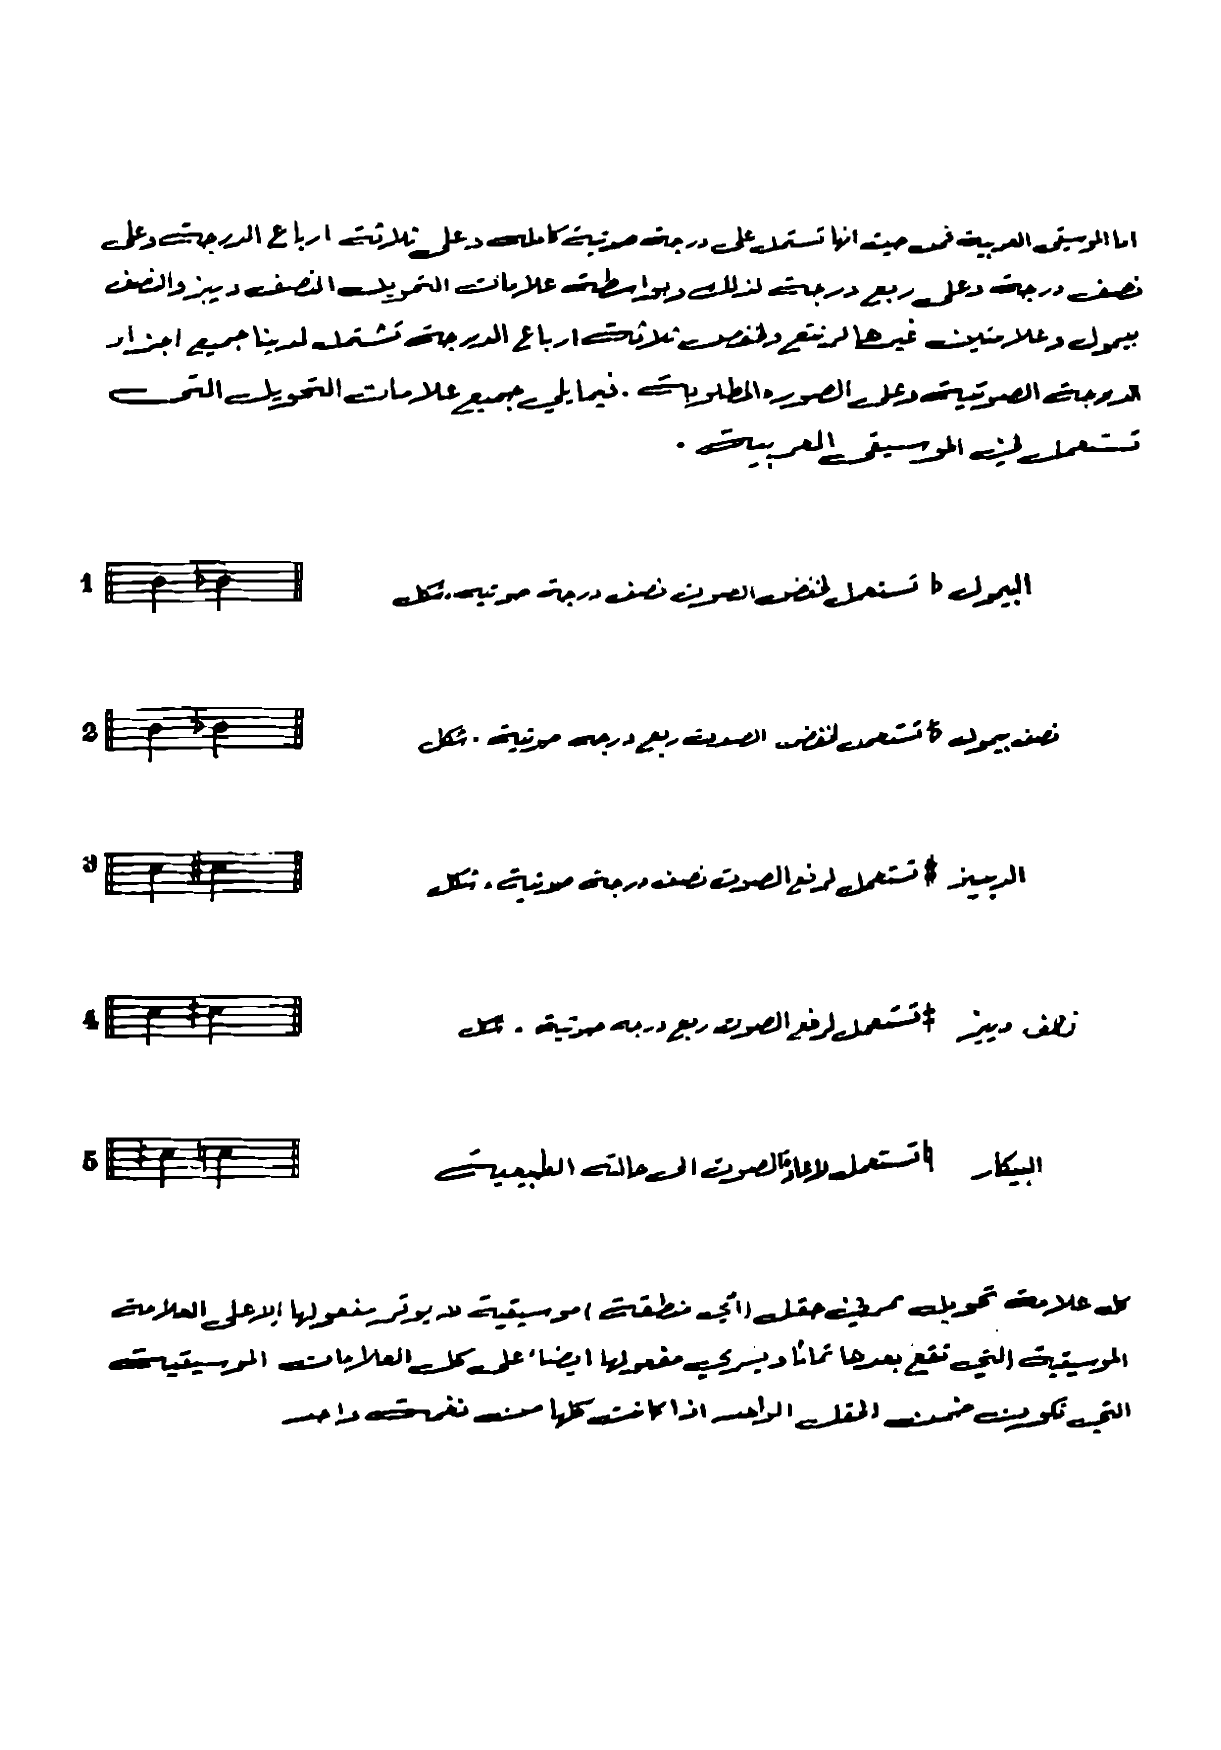 اما الموسيقى العربية فمن حيث انها تشتمل على درجة صوتية كاملة وعلى ثلاثة ارباع الدرجة وعلى
نصف درجة وعلى ربع درجة لذلك وبواسطة علامات التحويل النصف دييز والنصف
بيمول وعلامتين غيرها لرفع وخفض ثلاثة ارباع الدرجة تشتمل لدينا جميع اجزاء
الدرجة الصوتية وعلى الصوره المطلوبة . فيما يلي جميع علامات التحويل التي
تستعمل في الموسيقى العربية .
1 البيمول ♭ تستعمل لخفض الصوت نصف درجة صوتية . شكل
2 نصف بيمول تستعمل لخفض الصوت ربع درجه صوتية . شكل
3 الدييز # تستعمل لرفع الصوت نصف درجة صوتية . شكل
4 نصف دييز ‡ تستعمل لرفع الصوت ربع درجه صوتية . شكل
5 البيكار ♮ تستعمل لاعادة الصوت الى حالته الطبيعية
كل علامة تحويل في حقل (اي منطقة) موسيقية لا يوثر مفعولها إلا على العلامة
الموسيقية التي تقع بعدها تماماً ويسري مفعولها ايضاً على كل العلامات الموسيقية
التي تكون ضمن الحقل الواحد اذا كانت كلها من نغمة واحد